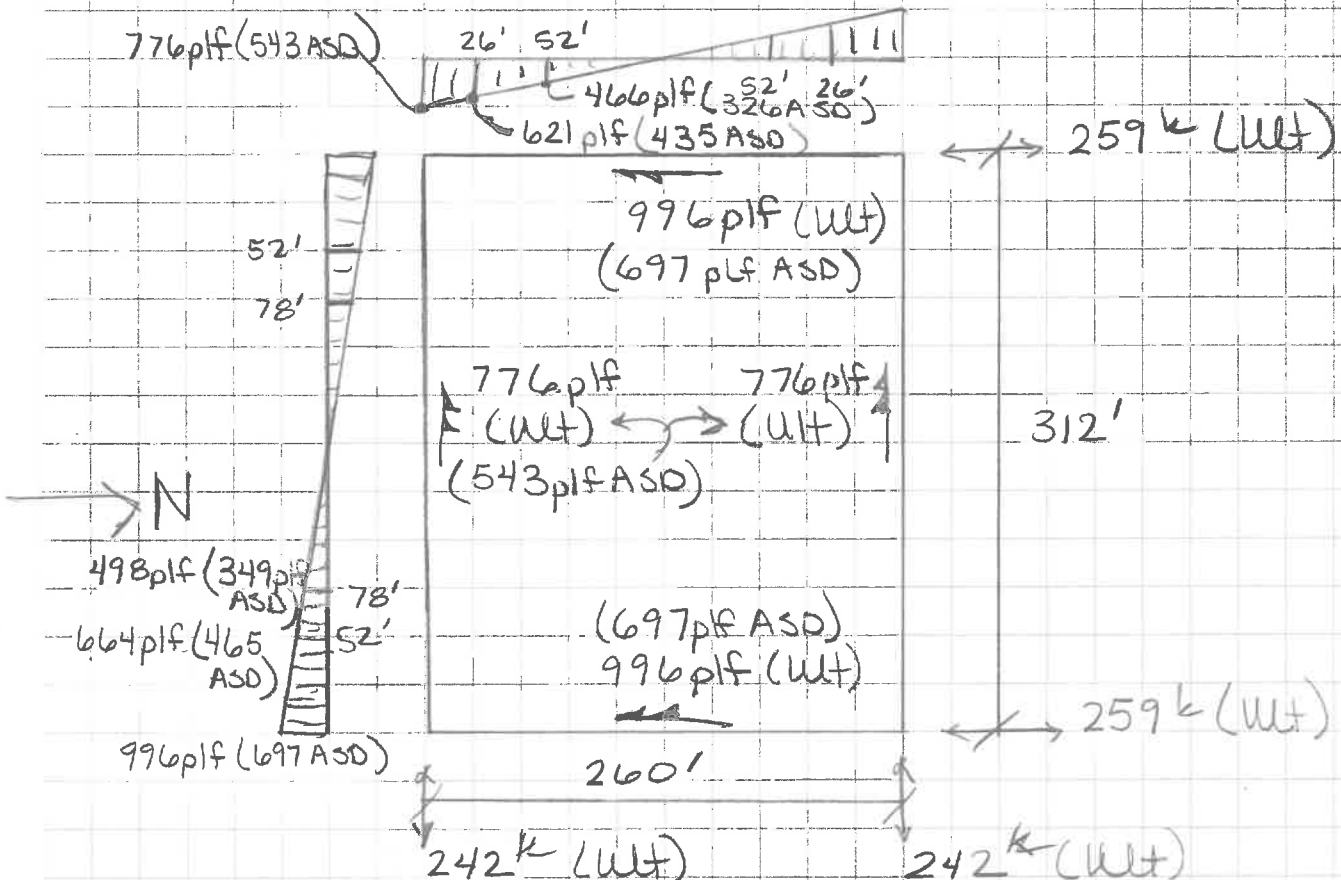 776plf (543 ASD)
26' 52'
466plf (326 ASD)
52' 26'
621 plf (435 ASD)
259 k (Ult)
996 plf (Ult)
(697 plf ASD)
52'
78'
776 plf
(Ult)
(543plf ASD)
776 plf
(Ult)
312'
N
498plf (349plf
ASD)
78'
664plf (465
ASD)
52'
(697plf ASD)
996 plf (Ult)
996plf (697 ASD)
259 k (Ult)
260'
242 k (Ult)
242 k (Ult)